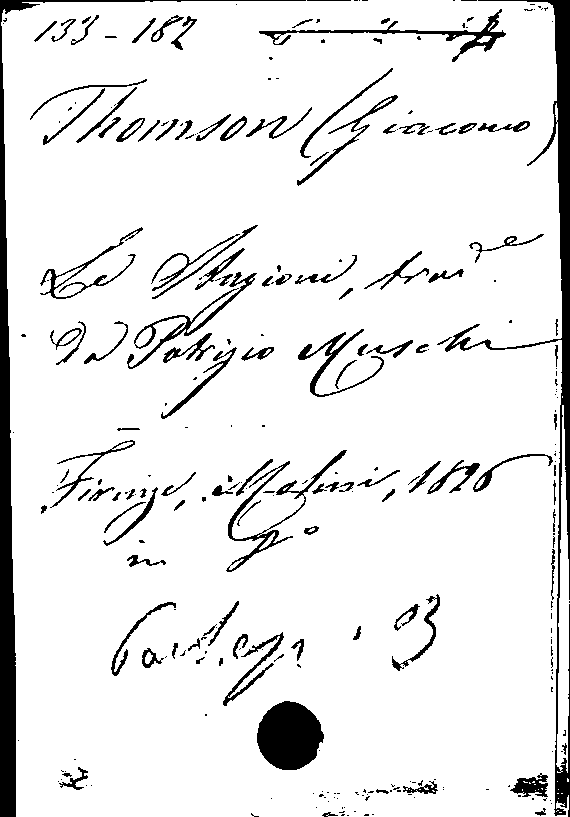 133-182
Thomson (Giacomo)
Le Stagioni, trad.e
da Patrizio Muschi
Firenze, 1826
in 8°